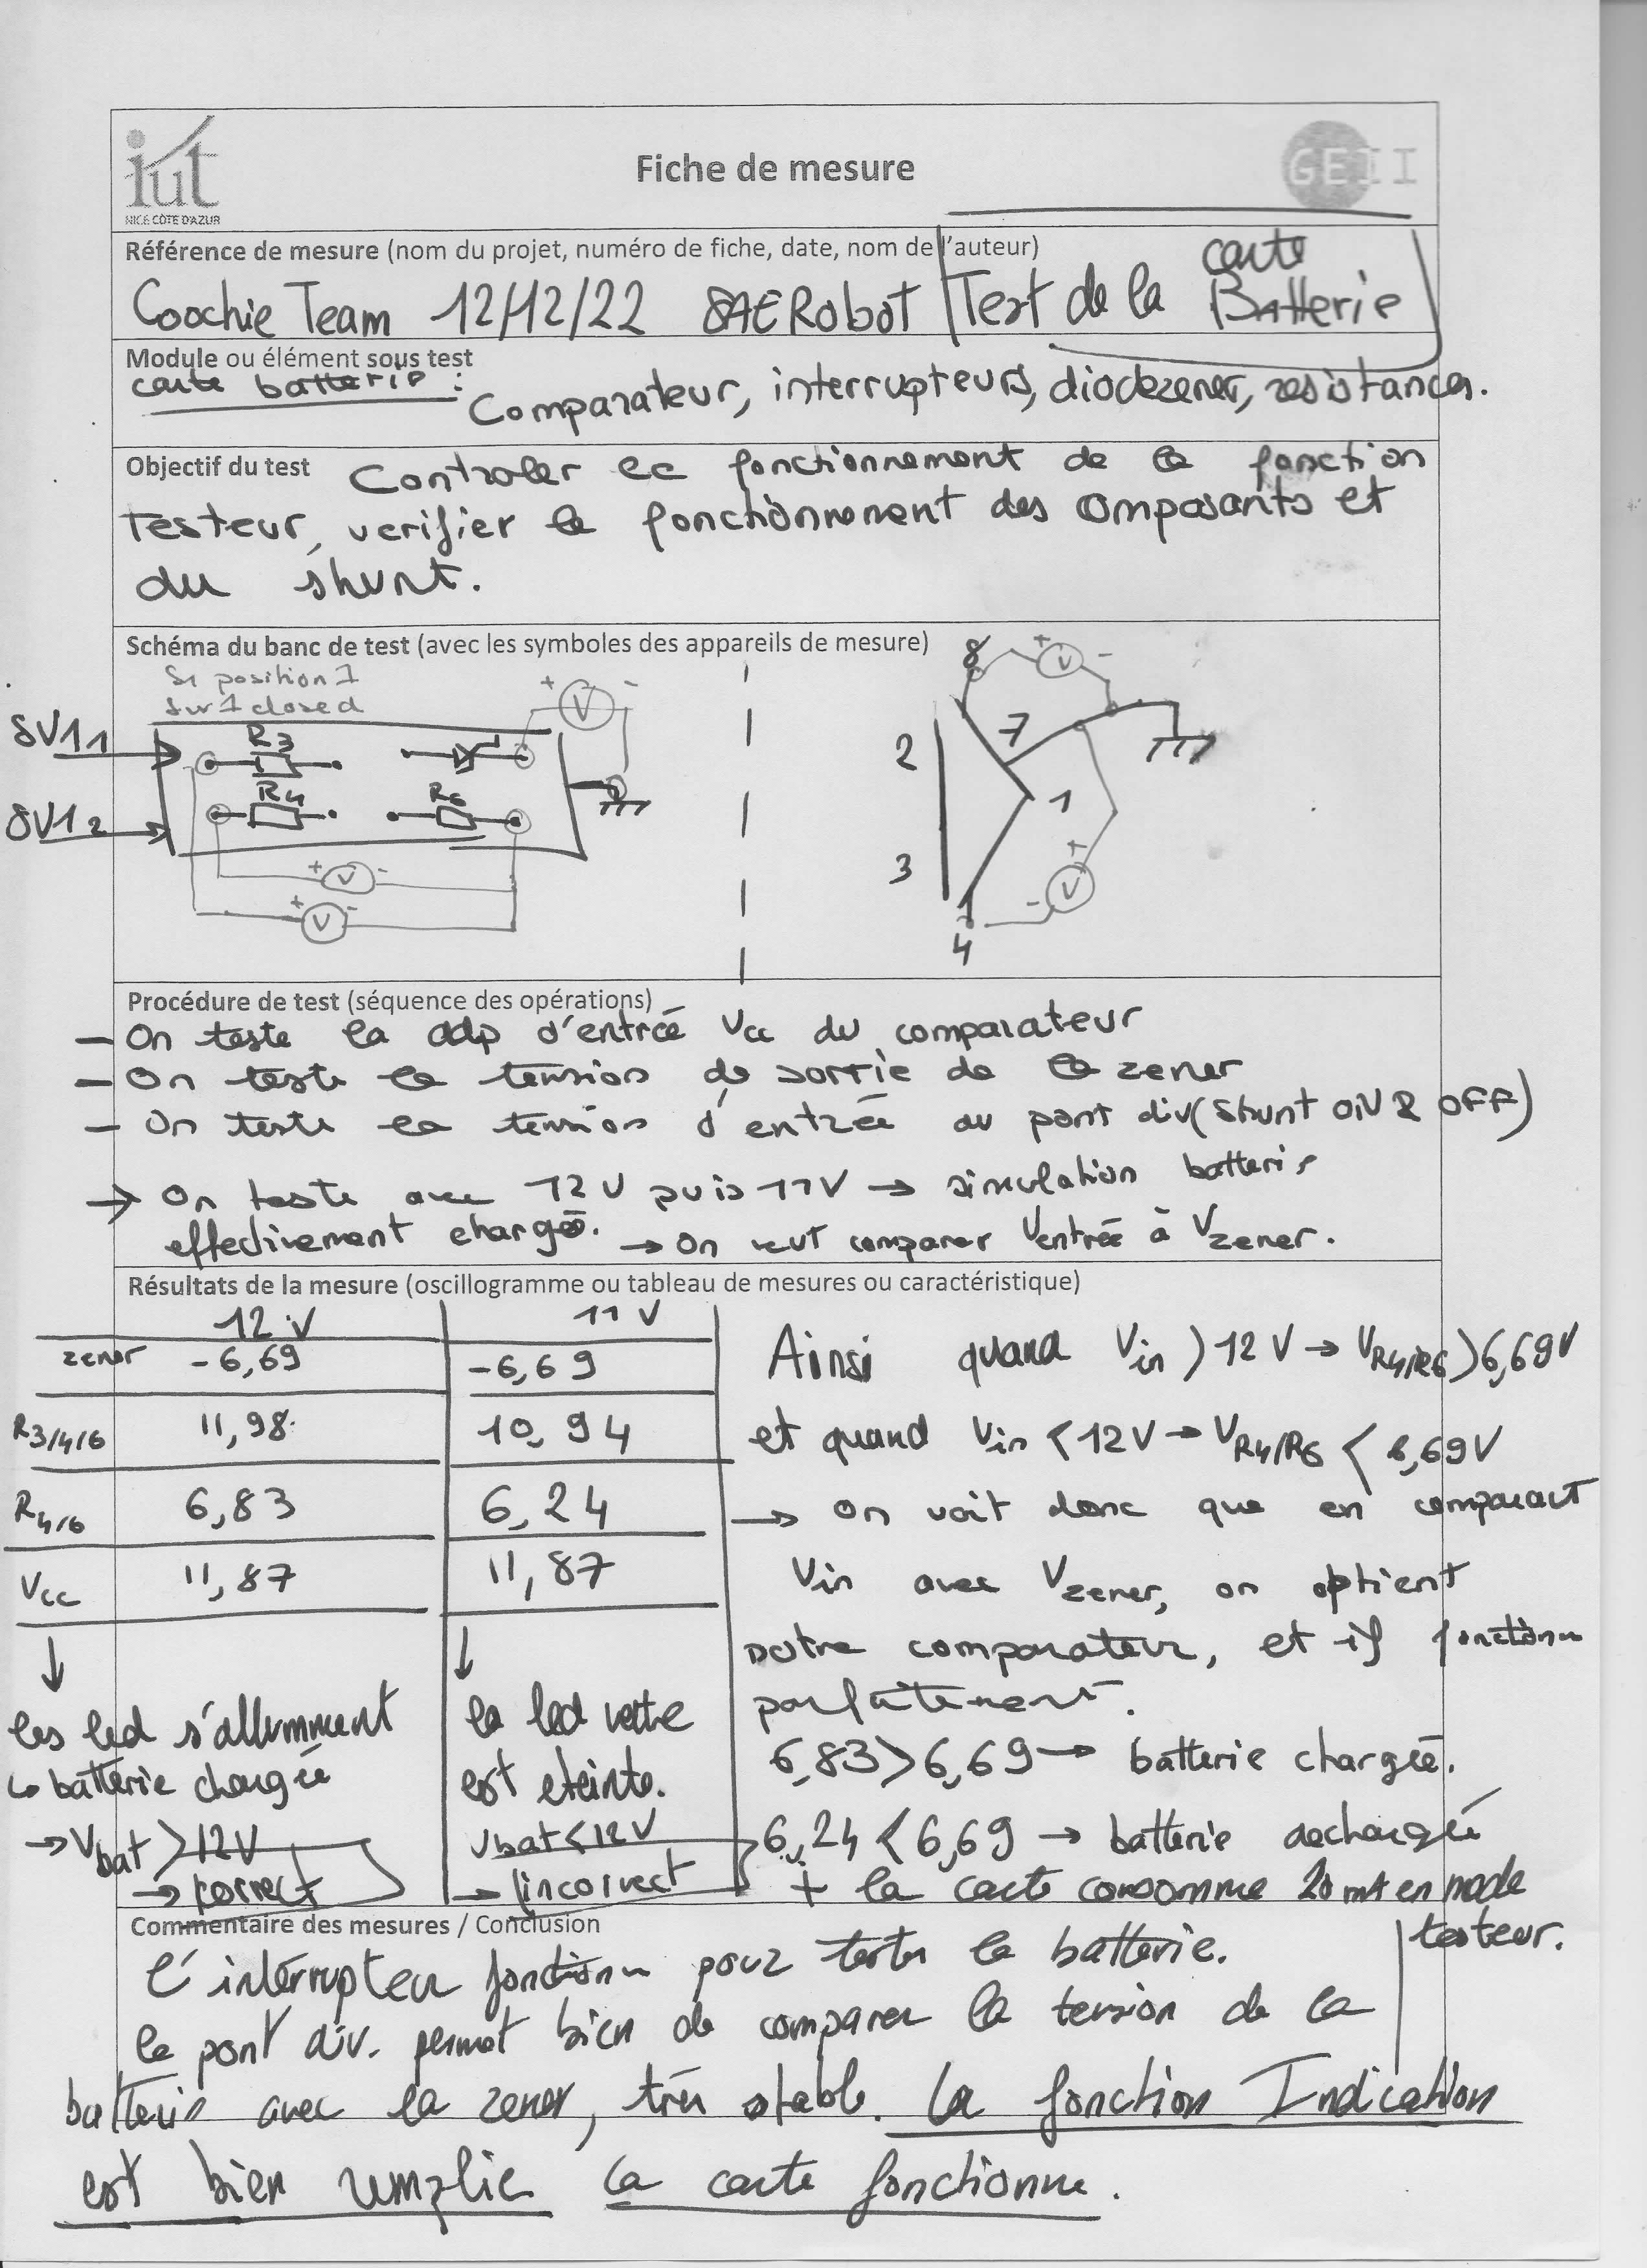 iut
NICE CÔTE D'AZUR
Fiche de mesure
GEII
Référence de mesure (nom du projet, numéro de fiche, date, nom de l'auteur)
Coochie Team 12/12/22 SAE Robot Test de la carte Batterie
Module ou élément sous test
carte batterie : Comparateur, interrupteurs, diodezener, resistances.
Objectif du test Controler le fonctionnement de la fonction
Testeur, verifier le fonctionnement des composants et
du shunt.
Schéma du banc de test (avec les symboles des appareils de mesure)
S1 position 1
Sw1 closed
8V1 1
8V1 2
R3
R4
R6
+ V -
+ V -
+ V -
8
+ V -
2
7
1
3
+
- V
4
Procédure de test (séquence des opérations)
- On teste la ddp d'entrée Vcc du comparateur
- On teste la tension de sortie de la zener
- On teste la tension d'entrée au pont div (Shunt ON & OFF)
→ On teste avec 12V puis 11V → simulation batterie
effectivement chargée. → On veut comparer Ventrée à Vzener.
Résultats de la mesure (oscillogramme ou tableau de mesures ou caractéristique)
12 V 11 V
zener -6,69 -6,69
R3/4/6 11,98 10,94
R4/6 6,83 6,24
Vcc 11,87 11,87
↓ ↓
les led s'allumment
↳ batterie chargée
→ Vbat > 12V
→ correct
la led verte
est eteinte.
Vbat < 12V
→ incorrect
Ainsi quand Vin > 12V → VR4/R6 > 6,69V
et quand Vin < 12V → VR4/R6 < 6,69V
→ On voit donc que en comparant
Vin avec Vzener, on obtient
notre comparateur, et il fonctionne
parfaitement.
6,83 > 6,69 → batterie chargée.
6,24 < 6,69 → batterie dechargée
+ la carte consomme 20 mA en mode
testeur.
Commentaire des mesures / Conclusion
L'interrupteur fonctionne pour tester la batterie.
le pont div. permet bien de comparer la tension de la
batterie avec la zener, très stable. La fonction Indication
est bien remplie la carte fonctionne.